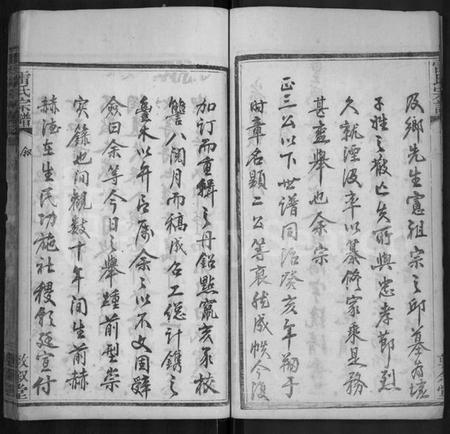 及鄉先生憲祖宗之邱墓為墟
子姓之散亡失所與忠孝節烈
久就湮汲率以纂修家乘是務
甚盛舉也余宗
正三公以下世譜同治癸亥年朔于
時章名顯二公等裒然成帙今復
加訂而重輯之丹鉛點竄亥豕校
讐八閱月而稿成召工總計鐫之
壹木以弁言屬余之以不文固辭
僉曰余等今日之舉踵前型崇
實錄也間觀數十年間生前赫
赫濟在生民功施社稷銘廷宣付
雷氏宗譜
敘
敦敘堂